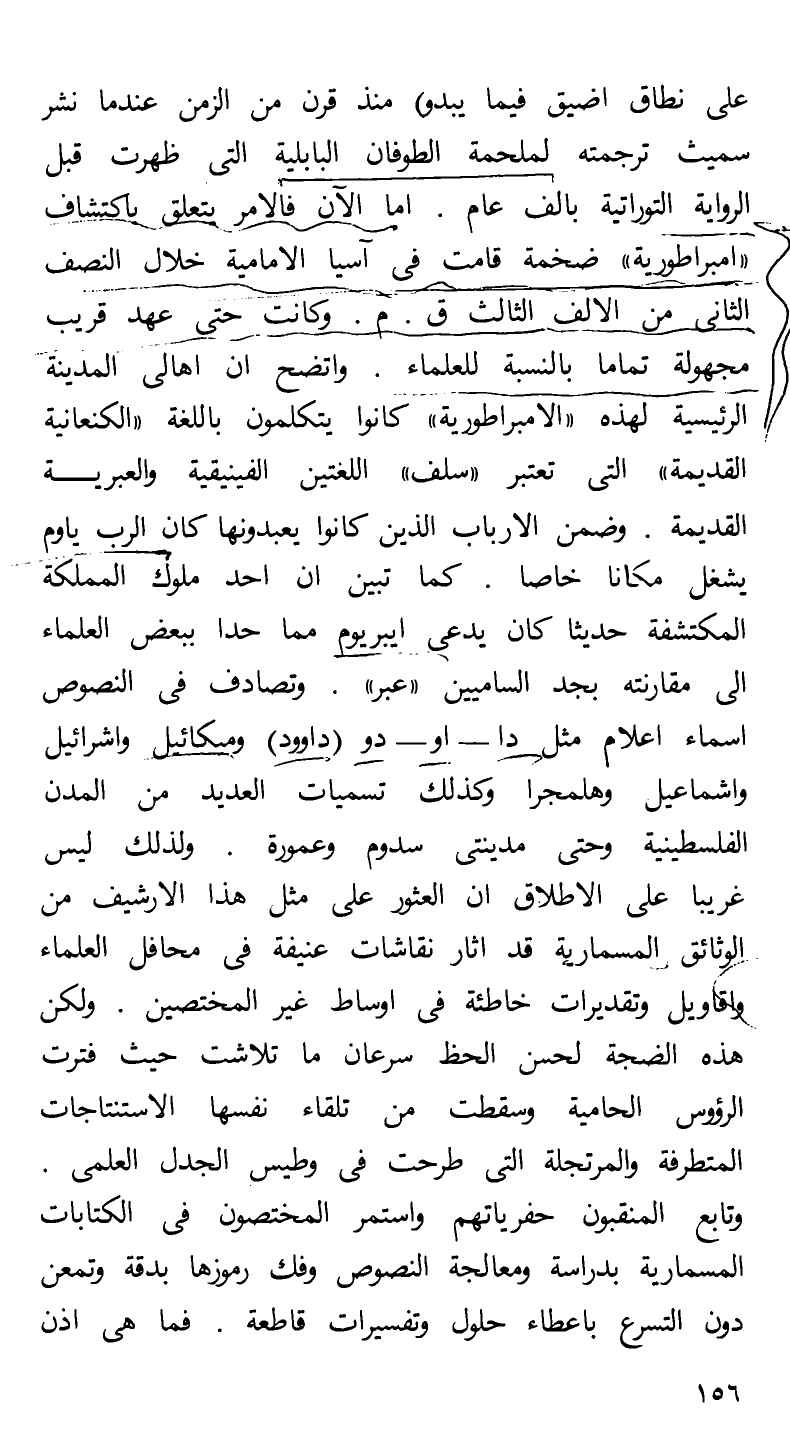 على نطاق اضيق فيما يبدو) منذ قرن من الزمن عندما نشر
سميث ترجمته لملحمة الطوفان البابلية التى ظهرت قبل
الرواية التوراتية بالف عام . اما الآن فالامر يتعلق باكتشاف
«امبراطورية» ضخمة قامت فى آسيا الامامية خلال النصف
الثانى من الالف الثالث ق . م . وكانت حتى عهد قريب
مجهولة تماما بالنسبة للعلماء . واتضح ان اهالى المدينة
الرئيسية لهذه «الامبراطورية» كانوا يتكلمون باللغة «الكنعانية
القديمة» التى تعتبر «سلف» اللغتين الفينيقية والعبريـــة
القديمة . وضمن الارباب الذين كانوا يعبدونها كان الرب ياوم
يشغل مكانا خاصا . كما تبين ان احد ملوك المملكة
المكتشفة حديثا كان يدعى ايبريوم مما حدا ببعض العلماء
الى مقارنته بجد الساميين «عبر» . وتصادف فى النصوص
اسماء اعلام مثل دا — او — دو (داوود) وميكائيل واشرائيل
واشماعيل وهلمجرا وكذلك تسميات العديد من المدن
الفلسطينية وحتى مدينتى سدوم وعمورة . ولذلك ليس
غريبا على الاطلاق ان العثور على مثل هذا الارشيف من
الوثائق المسمارية قد اثار نقاشات عنيفة فى محافل العلماء
واقاويل وتقديرات خاطئة فى اوساط غير المختصين . ولكن
هذه الضجة لحسن الحظ سرعان ما تلاشت حيث فترت
الرؤوس الحامية وسقطت من تلقاء نفسها الاستنتاجات
المتطرفة والمرتجلة التى طرحت فى وطيس الجدل العلمى .
وتابع المنقبون حفرياتهم واستمر المختصون فى الكتابات
المسمارية بدراسة ومعالجة النصوص وفك رموزها بدقة وتمعن
دون التسرع باعطاء حلول وتفسيرات قاطعة . فما هى اذن
١٥٦